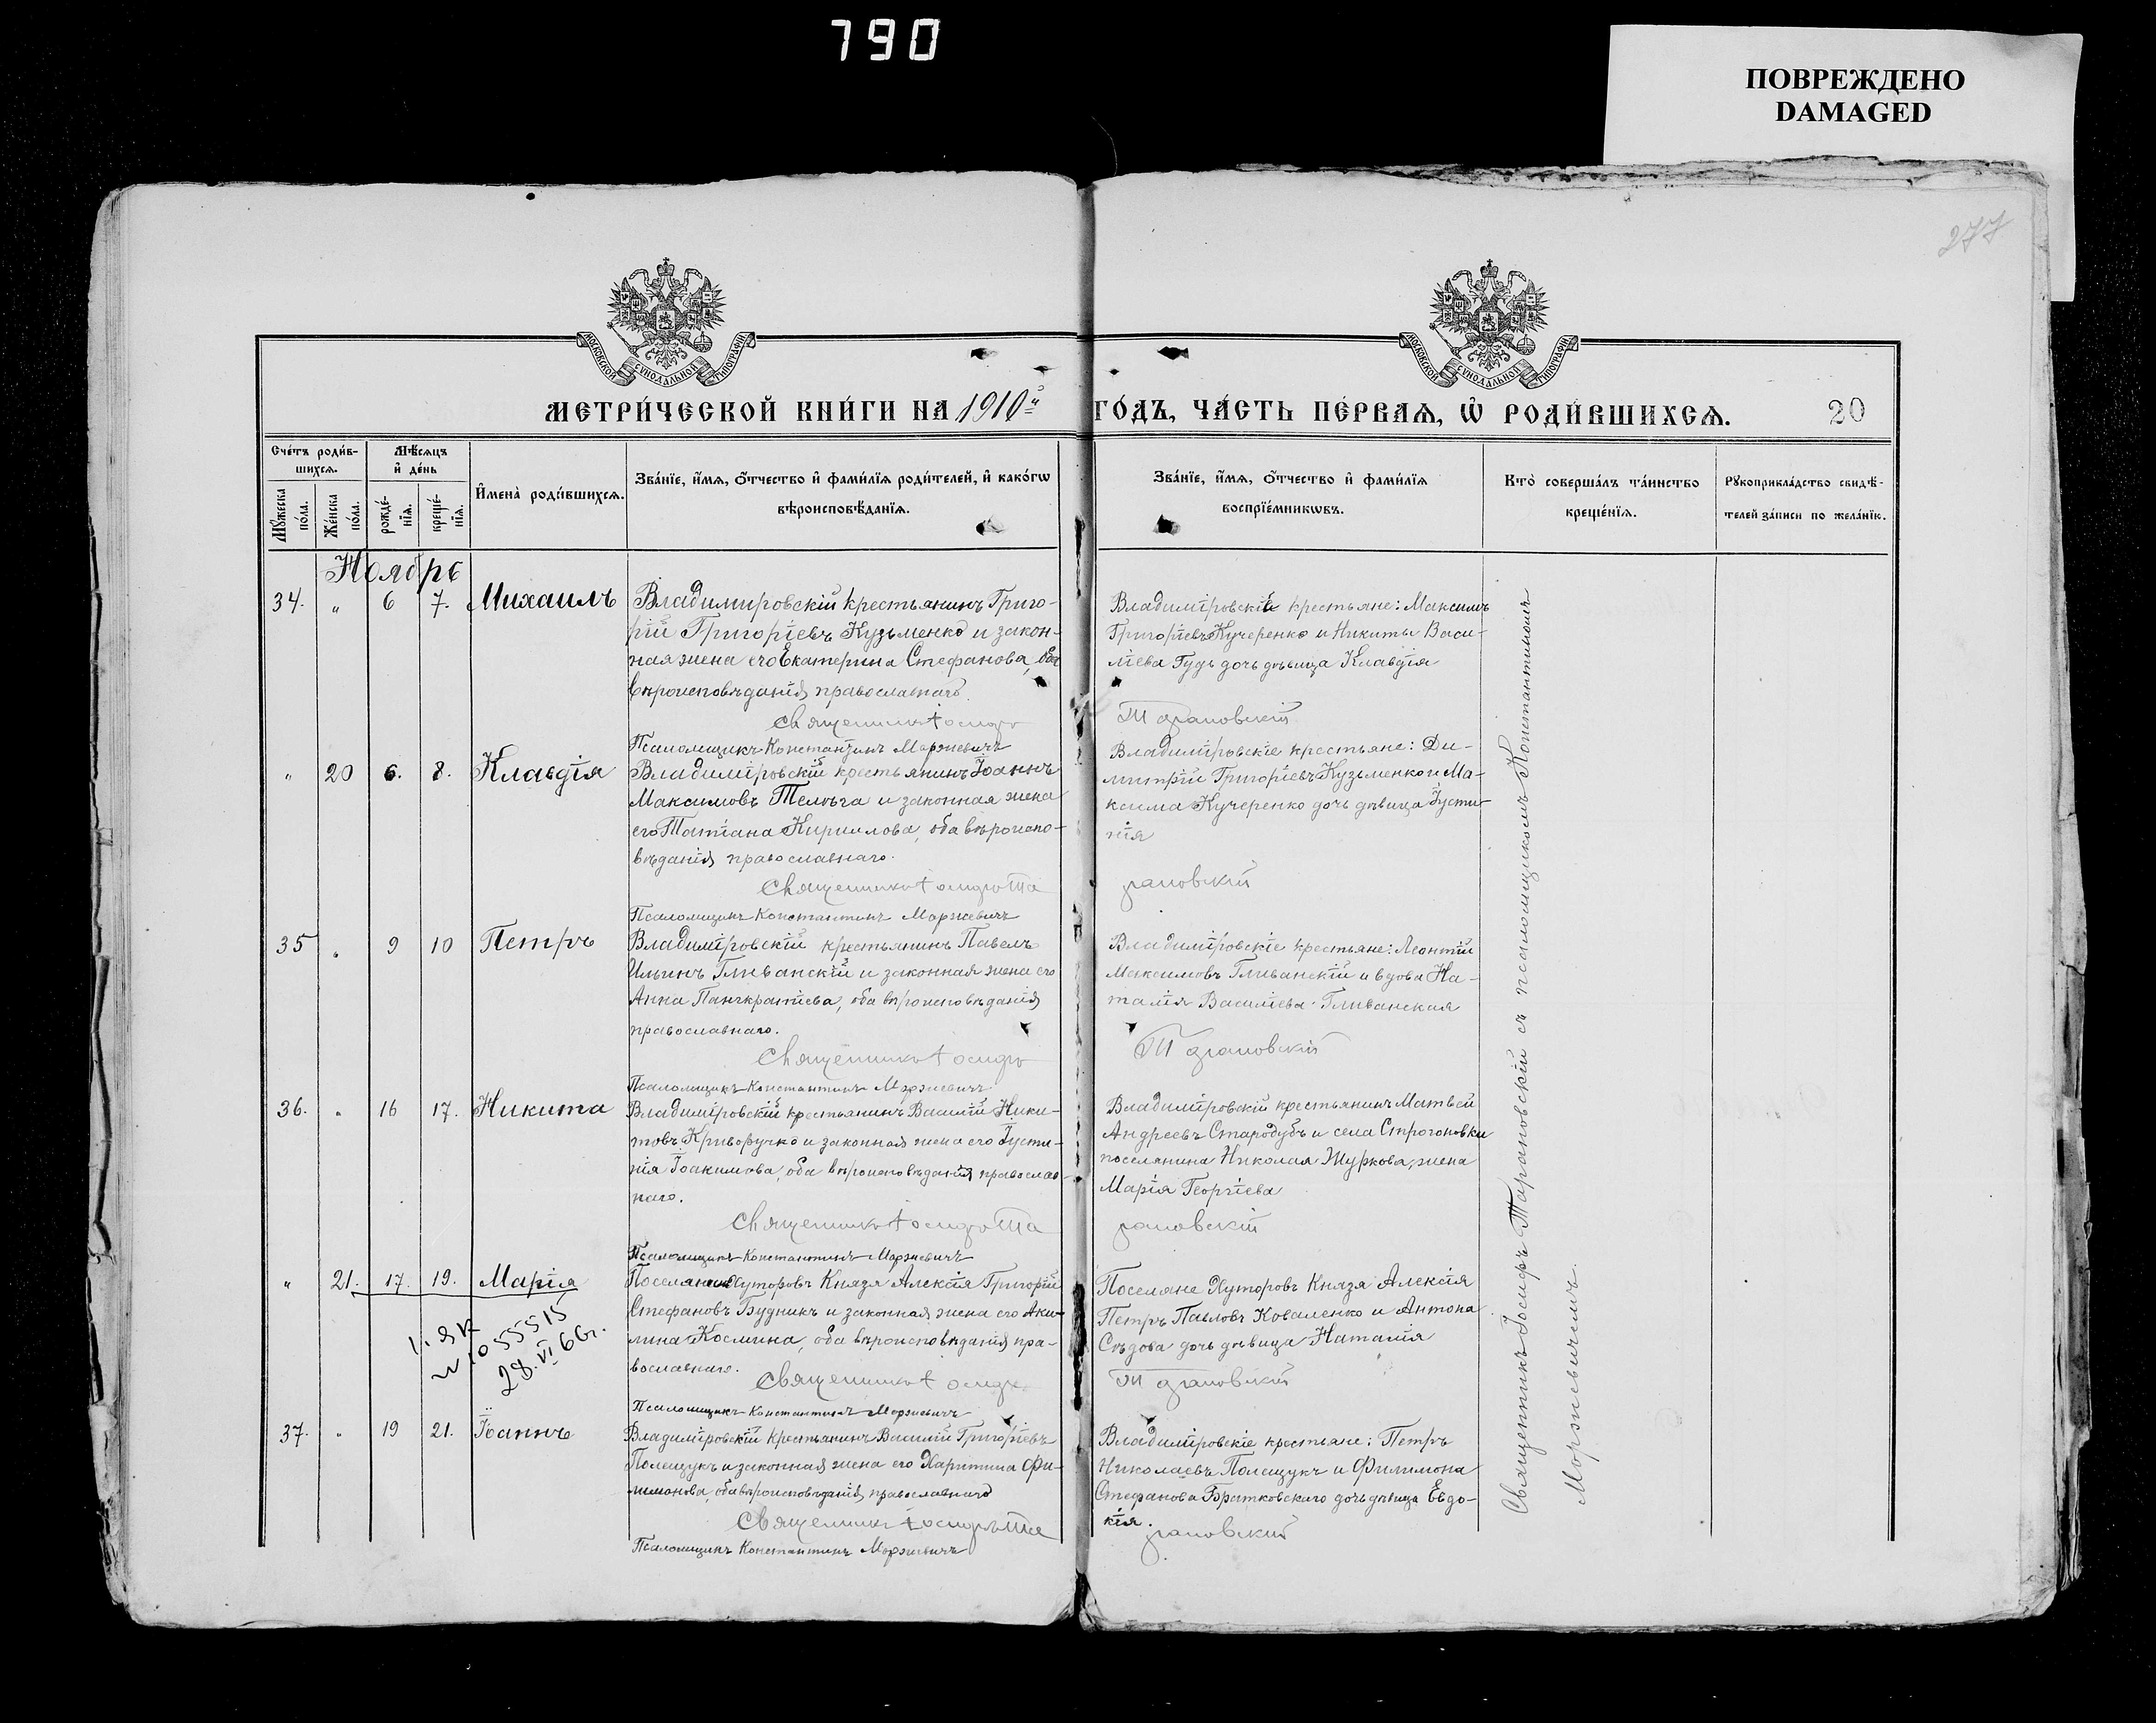 790
ПОВРЕЖДЕНО
DAMAGED
277
МОСКОВСКОЙ СѴНОДАЛЬНОЙ ТИПОГРАФІИ
МОСКОВСКОЙ СѴНОДАЛЬНОЙ ТИПОГРАФІИ
МЕТРИ́ЧЕСКОЙ КНИ́ГИ НА 1910й ГО́ДЪ, ЧА́СТЬ ПЕ́РВАѦ, Ѡ҆ РОДИ́ВШИХСѦ.
20
Сче́тъ роди́в-
шихсѧ.
Мѣ́сѧцъ
и҆ де́нь
Мꙋ́жеска
по́ла.
Же́нска
по́ла.
рожде́-
нїѧ.
креще́-
нїѧ.
И҆мена̀ роди́вшихсѧ.
Зва́нїе, и҆́мѧ, ѻ҆́тчество и҆ фами́лїѧ роди́телей, и҆ како́гѡ
вѣроисповѣ́данїѧ.
Зва́нїе, и҆́мѧ, ѻ҆́тчество и҆ фами́лїѧ
воспрїе́мникѡвъ.
Кто̀ соверша́лъ та́инство
креще́нїѧ.
Рꙋкоприкла́дство свидѣ́-
телей за́писи по жела́нїю.
Ноябрь
34. " 6 7. Михаилъ
Владимировскій крестьянинъ Григо-
рій Григоріевъ Кузьменко и закон-
ная жена его Екатерина Стефанова, оба
вѣроисповѣданія православнаго.
Священникъ Іосифъ
Псаломщикъ Константинъ Моржевичъ
Владимірскіе крестьяне: Максимъ
Григоріевъ Кучеренко и Никиты Васи-
ліева Гудь дочь дѣвица Клавдія
Тарановскій
" 20 6. 8. Клавдія
Владиміровскій крестьянинъ Іоаннъ
Максимовъ Телѣга и законная жена
его Татіана Кириллова, оба вѣроиспо-
вѣданія православнаго.
Священникъ Іосифъ Та
Псаломщикъ Константинъ Моржевичъ
Владиміровскіе крестьяне: Ди-
митрій Григоріевъ Кузьменко и Ма-
ксима Кучеренко дочь дѣвица Іусти-
нія
рановскій
35 " 9 10 Петръ
Владиміровскій крестьянинъ Павелъ
Ильинъ Гливанскій и законная жена его
Анна Панкратіева, оба вѣроисповѣданія
православнаго.
Священникъ Іосифъ
Псаломщикъ Константинъ Моржевичъ
Владиміровскіе крестьяне: Леонтій
Максимовъ Гливанскій и вдова На-
талія Василіева Гливанская
Тарановскій
36. " 16 17. Никита
Владиміровскій крестьянинъ Василій Ники-
товъ Криворучко и законная жена его Іусти-
нія Іоакимова, оба вѣроисповѣданія православ-
наго.
Священникъ Іосифъ Та
Псаломщикъ Константинъ Моржевичъ
Владиміровскій крестьянинъ Матвей
Андреевъ Стародубъ и села Строгоновки
поселянина Николая Журкова, жена
Марія Георгіева
рановскій
" 21. 17. 19. Марія
055515
28. VI 66г.
Поселянинъ Хуторовъ Князя Алексія Григорій
Стефановъ Будникъ и законная жена его Аки-
лина Космина, оба вѣроисповѣданія пра-
вославнаго.
Священникъ Іосифъ
Псаломщикъ Константинъ Моржевичъ
Поселяне Хуторовъ Князя Алексія
Петръ Павловъ Коваленко и Антона
Сѣдова дочь дѣвица Наталія
Тарановскій
37. " 19 21. Іоаннъ
Владиміровскій крестьянинъ Василій Григоріевъ
Полещукъ и законная жена его Харитина Фи-
лимонова, оба вѣроисповѣданія православнаго
Священникъ Іосифъ Та
Псаломщикъ Константинъ Моржевичъ
Владиміровскіе крестьяне: Петръ
Николаевъ Полещукъ и Филимона
Стефанова Братковскаго дочь дѣвица Евдо-
кія.
рановскій
Священникъ Іосифъ Тарановскій съ псаломщикомъ Константиномъ
Моржевичемъ.